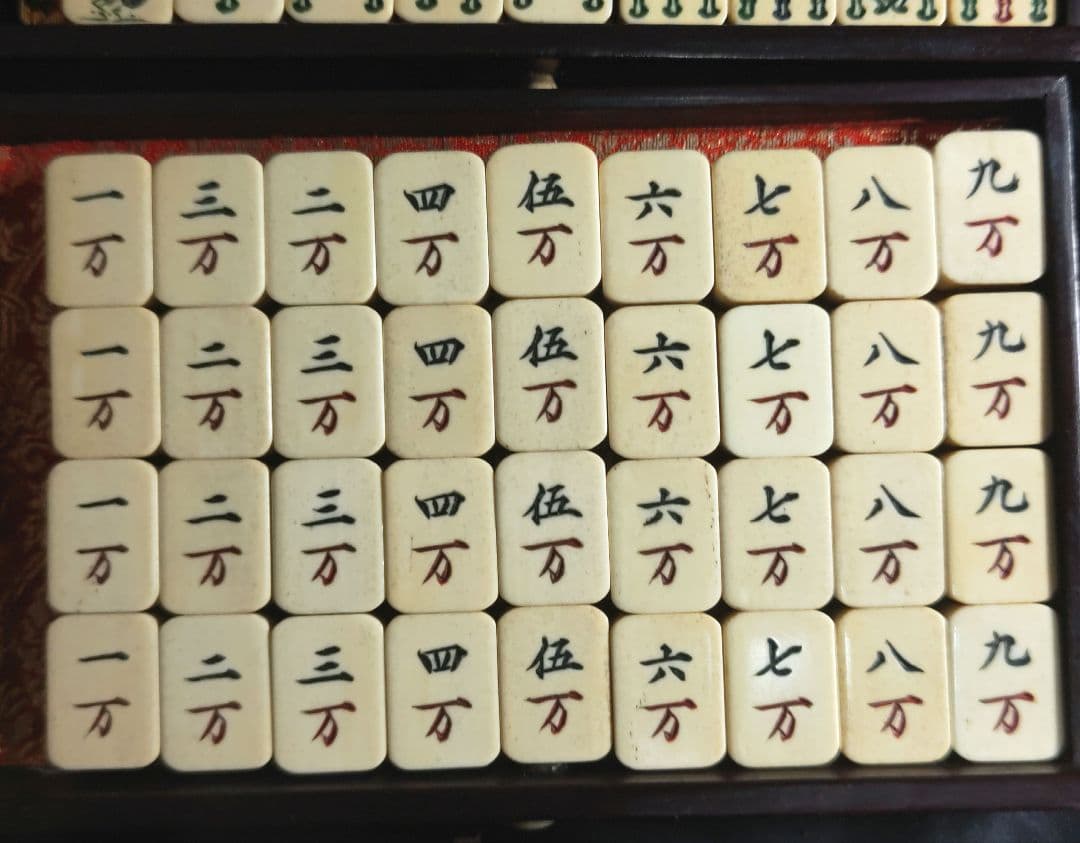 一 三 二 四 伍 六 七 八 九
万 万 万 万 万 万 万 万 万
一 二 三 四 伍 六 七 八 九
万 万 万 万 万 万 万 万 万
一 二 三 四 伍 六 七 八 九
万 万 万 万 万 万 万 万 万
一 二 三 四 伍 六 七 八 九
万 万 万 万 万 万 万 万 万